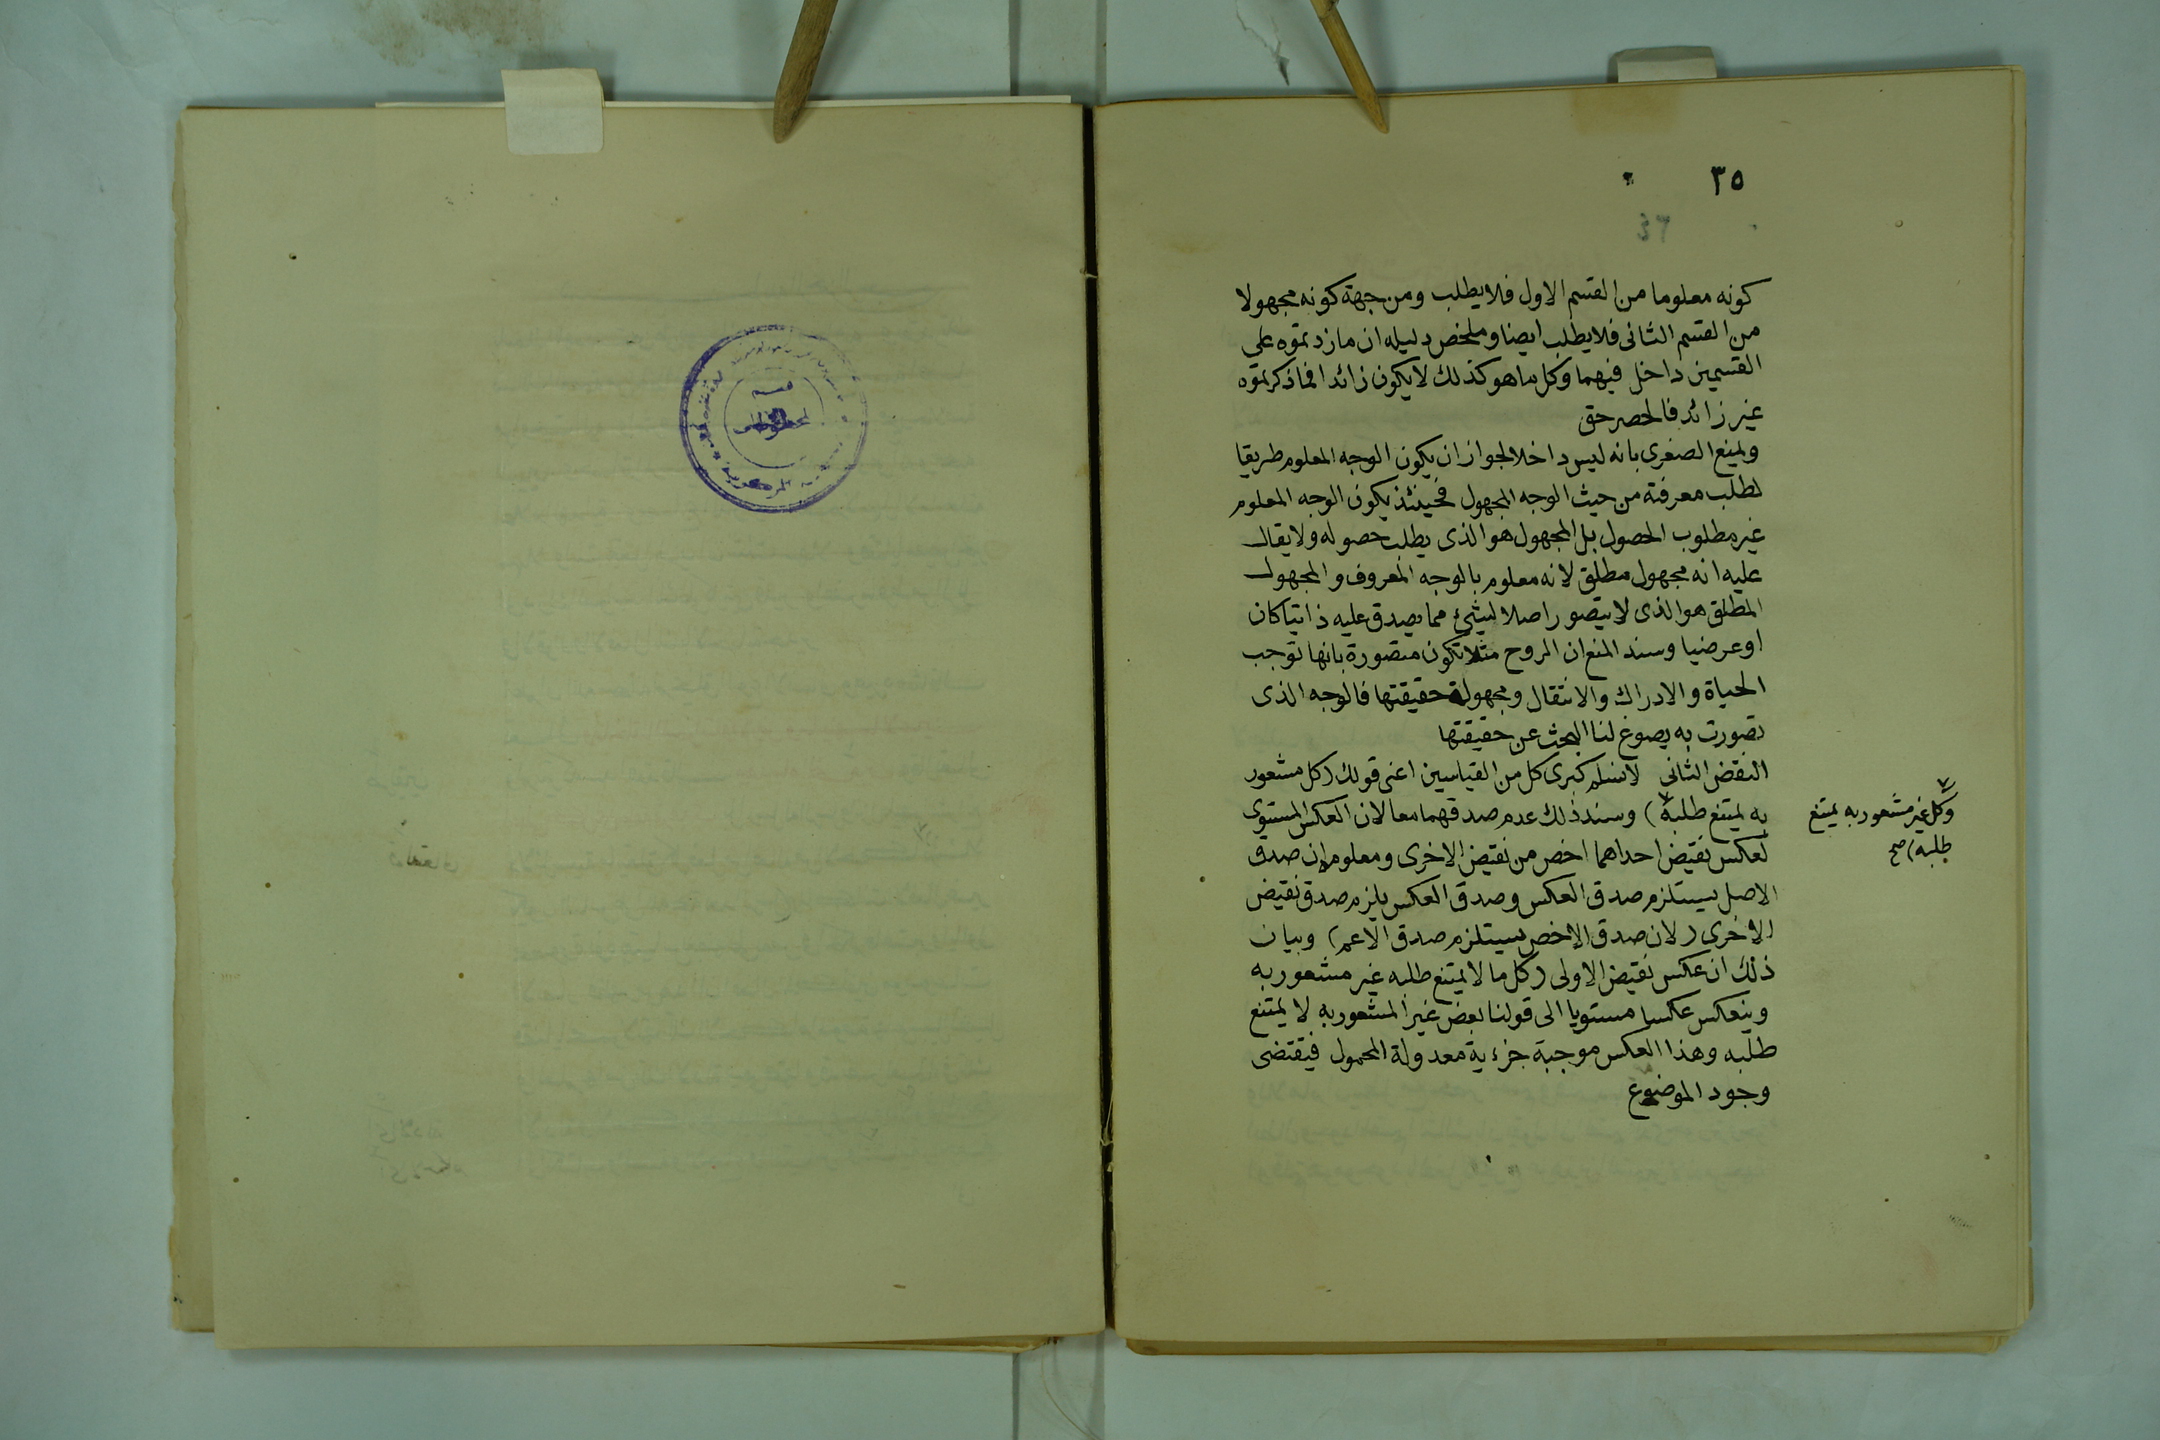 ٣٥
٣٤
كونه معلوما من القسم الاول فلا يطلب ومن جهة كونه مجهولا
من القسم الثانى فلا يطلب ايضا وملخص دليله ان ما زدتموه على
القسمين داخل فيهما وكل ما هو كذلك لا يكون زائدا فما ذكرتموه
غير زائد فالحصر حق
ولمنع الصغرى بانه ليس داخلا لجواز ان يكون الوجه المعلوم طريقا
لطلب معرفة من حيث الوجه المجهول فحينئذ يكون الوجه المعلوم
غير مطلوب الحصول بل المجهول هو الذى يطلب حصوله ولا يقال
عليه انه مجهول مطلق لانه معلوم بالوجه المعروف والمجهول
المطلق هو الذى لا يتصور اصلا لشئ مما يصدق عليه ذاتيا كان
او عرضيا وسند المنع ان الروح مثلا تكون متصورة بانها توجب
الحياة والادراك والانتقال ومجهولة حقيقتها فالوجه الذى
تصورت به يصوغ لنا البحث عن حقيقتها
النقض الثانى لا نسلم كبرى كل من القياسين اعنى قولك (كل مشعور
به يمتنع طلبه) وسند ذلك عدم صدقهما معا لان العكس المستوى
لعكس نقيض احداهما اخص من نقيض الاخرى ومعلوم ان صدق
الاصل يستلزم صدق العكس وصدق العكس يلزم صدق نقيض
الاخرى (لان صدق الاخص يستلزم صدق الاعم) وبيان
ذلك ان عكس نقيض الاولى (كل ما لا يمتنع طلبه غير مشعور به
وينعكس عكسا مستويا الى قولنا بعض غير المشعور به لا يمتنع
طلبه وهذا العكس موجبة جزءية معدولة المحمول فيقتضى
وجود الموضوع
وكل غير مشعور به يمتنع
طلبه) صح
قسم